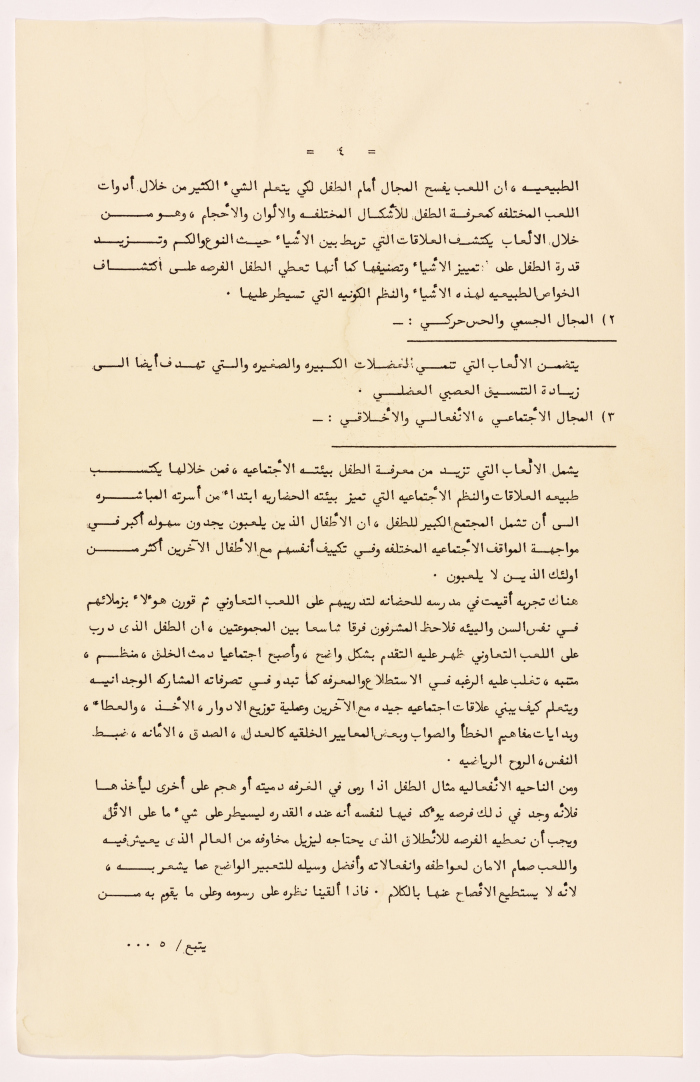 = ٤ =
الطبيعيه ، ان اللعب يفسح المجال أمام الطفل لكي يتعلم الشيء الكثير من خلال أدوات
اللعب المختلفه كمعرفة الطفل للأشكال المختلفه والالوان والأحجام ، وهو من
خلال الألعاب يكتشف العلاقات التي تربط بين الأشياء حيث النوع والكم وتزيد
قدرة الطفل على تمييز الأشياء وتصنيفها كما أنها تعطي الطفل الفرصه على اكتشاف
الخواص الطبيعيه لهذه الأشياء والنظم الكونيه التي تسيطر عليها .
٢) المجال الجسمي والحس حركي : ـ
يتضمن الألعاب التي تنمي العضلات الكبيره والصغيره والتي تهدف أيضا الى
زيادة التنسيق العصبي العضلي .
٣) المجال الأجتماعي ، الأنفعالي والأخلاقي : ـ
يشمل الألعاب التي تزيد من معرفة الطفل بيئته الأجتماعيه ، فمن خلالها يكتسب
طبيعه العلاقات والنظم الأجتماعيه التي تميز بيئته الحضاريه ابتداء من أسرته المباشره
الى أن تشمل المجتمع الكبير للطفل ، ان الأطفال الذين يلعبون يجدون سهوله أكبر في
مواجهة المواقف الأجتماعيه المختلفه وفي تكييف أنفسهم مع الأطفال الآخرين أكثر من
اولئك الذين لا يلعبون .
هناك تجربه أقيمت في مدرسه للحضانه لتدريبهم على اللعب التعاوني ثم قورن هوءلاء بزملائهم
في نفس السن والبيئه فلاحظ المشرفون فرقا شاسعا بين المجموعتين ، ان الطفل الذى درب
على اللعب التعاوني ظهر عليه التقدم بشكل واضح ، وأصبح اجتماعيا دمث الخلق ، منظم ،
متنبه ، تغلب عليه الرغبه في الاستطلاع والمعرفه كما تبدو في تصرفاته المشاركه الوجدانيه
ويتعلم كيف يبني علاقات اجتماعيه جيده مع الآخرين وعملية توزيع الادوار ، الأخذ ، والعطاء ،
وبدايات مفاهيم الخطأ والصواب وبعض المعايير الخلقيه كالعدل ، الصدق ، الأمانه ، ضبط
النفس ، الروح الرياضيه .
ومن الناحيه الأنفعاليه مثال الطفل اذا رمى في الغرفه دميته أو هجم على أخرى ليأخذها
فلأنه وجد في ذلك فرصه يوءكد فيها لنفسه أنه عنده القدره ليسيطر على شيء ما على الأقل
ويجب أن نعطيه الفرصه للأنطلاق الذى يحتاجه ليزيل مخاوفه من العالم الذى يعيش فيه
واللعب صمام الامان لعواطفه وانفعالاته وأفضل وسيله للتعبير الواضح عما يشعر به ،
لأنه لا يستطيع الأفصاح عنها بالكلام . فاذا ألقينا نظره على رسومه وعلى ما يقوم به من
يتبع / ٥ ...